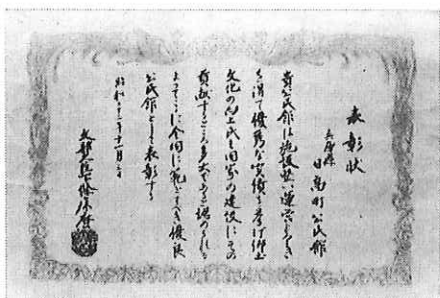 表彰状
兵庫縣
日高町公民館
貴公民館は施設並に運営よろしき
を得て優秀な実績を挙げ郷土
文化の向上民主国家の建設にその
貢献するところ多大であると認められる
よってここに全国に範とすべき優良
公民館として表彰する
昭和二十三年十一月三日
文部大臣下條康麿